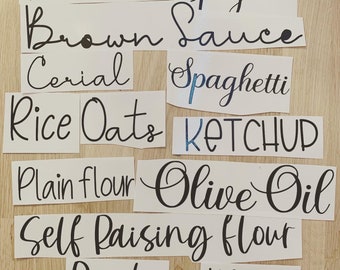 Brown Sauce
Cerial
Spaghetti
Rice
Oats
KETCHUP
Plain flour
Olive Oil
Self Raising flour